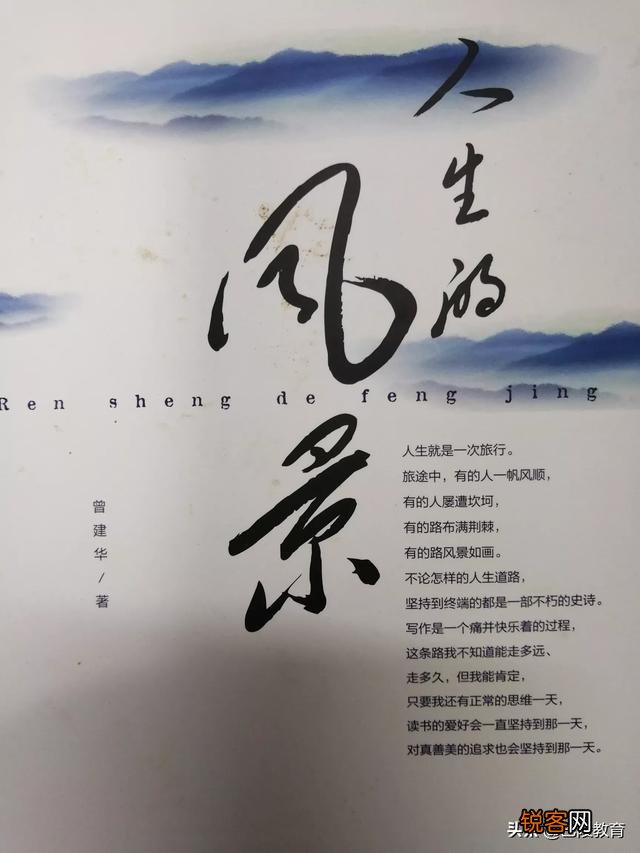 人生的
风景
Ren sheng de feng jing
曾建华/著
人生就是一次旅行。
旅途中，有的人一帆风顺，
有的人屡遭坎坷，
有的路布满荆棘，
有的路风景如画。
不论怎样的人生道路，
坚持到终端的都是一部不朽的史诗。
写作是一个痛并快乐着的过程，
这条路我不知道能走多远、
走多久，但我能肯定，
只要我还有正常的思维一天，
读书的爱好会一直坚持到那一天，
对真善美的追求也会坚持到那一天。
锐客网
教育